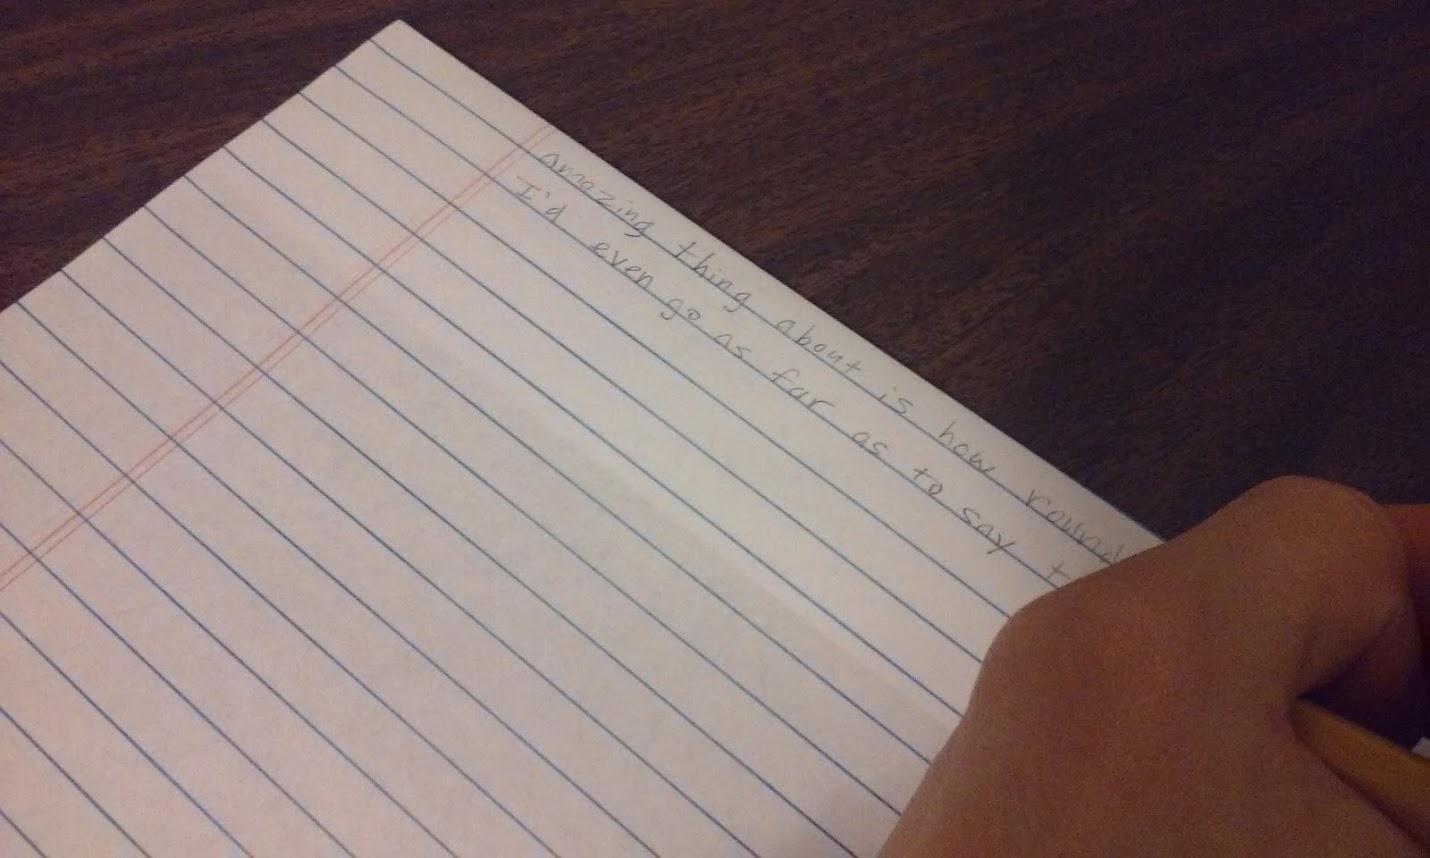 amazing thing about is how round
I'd even go as far as to say t